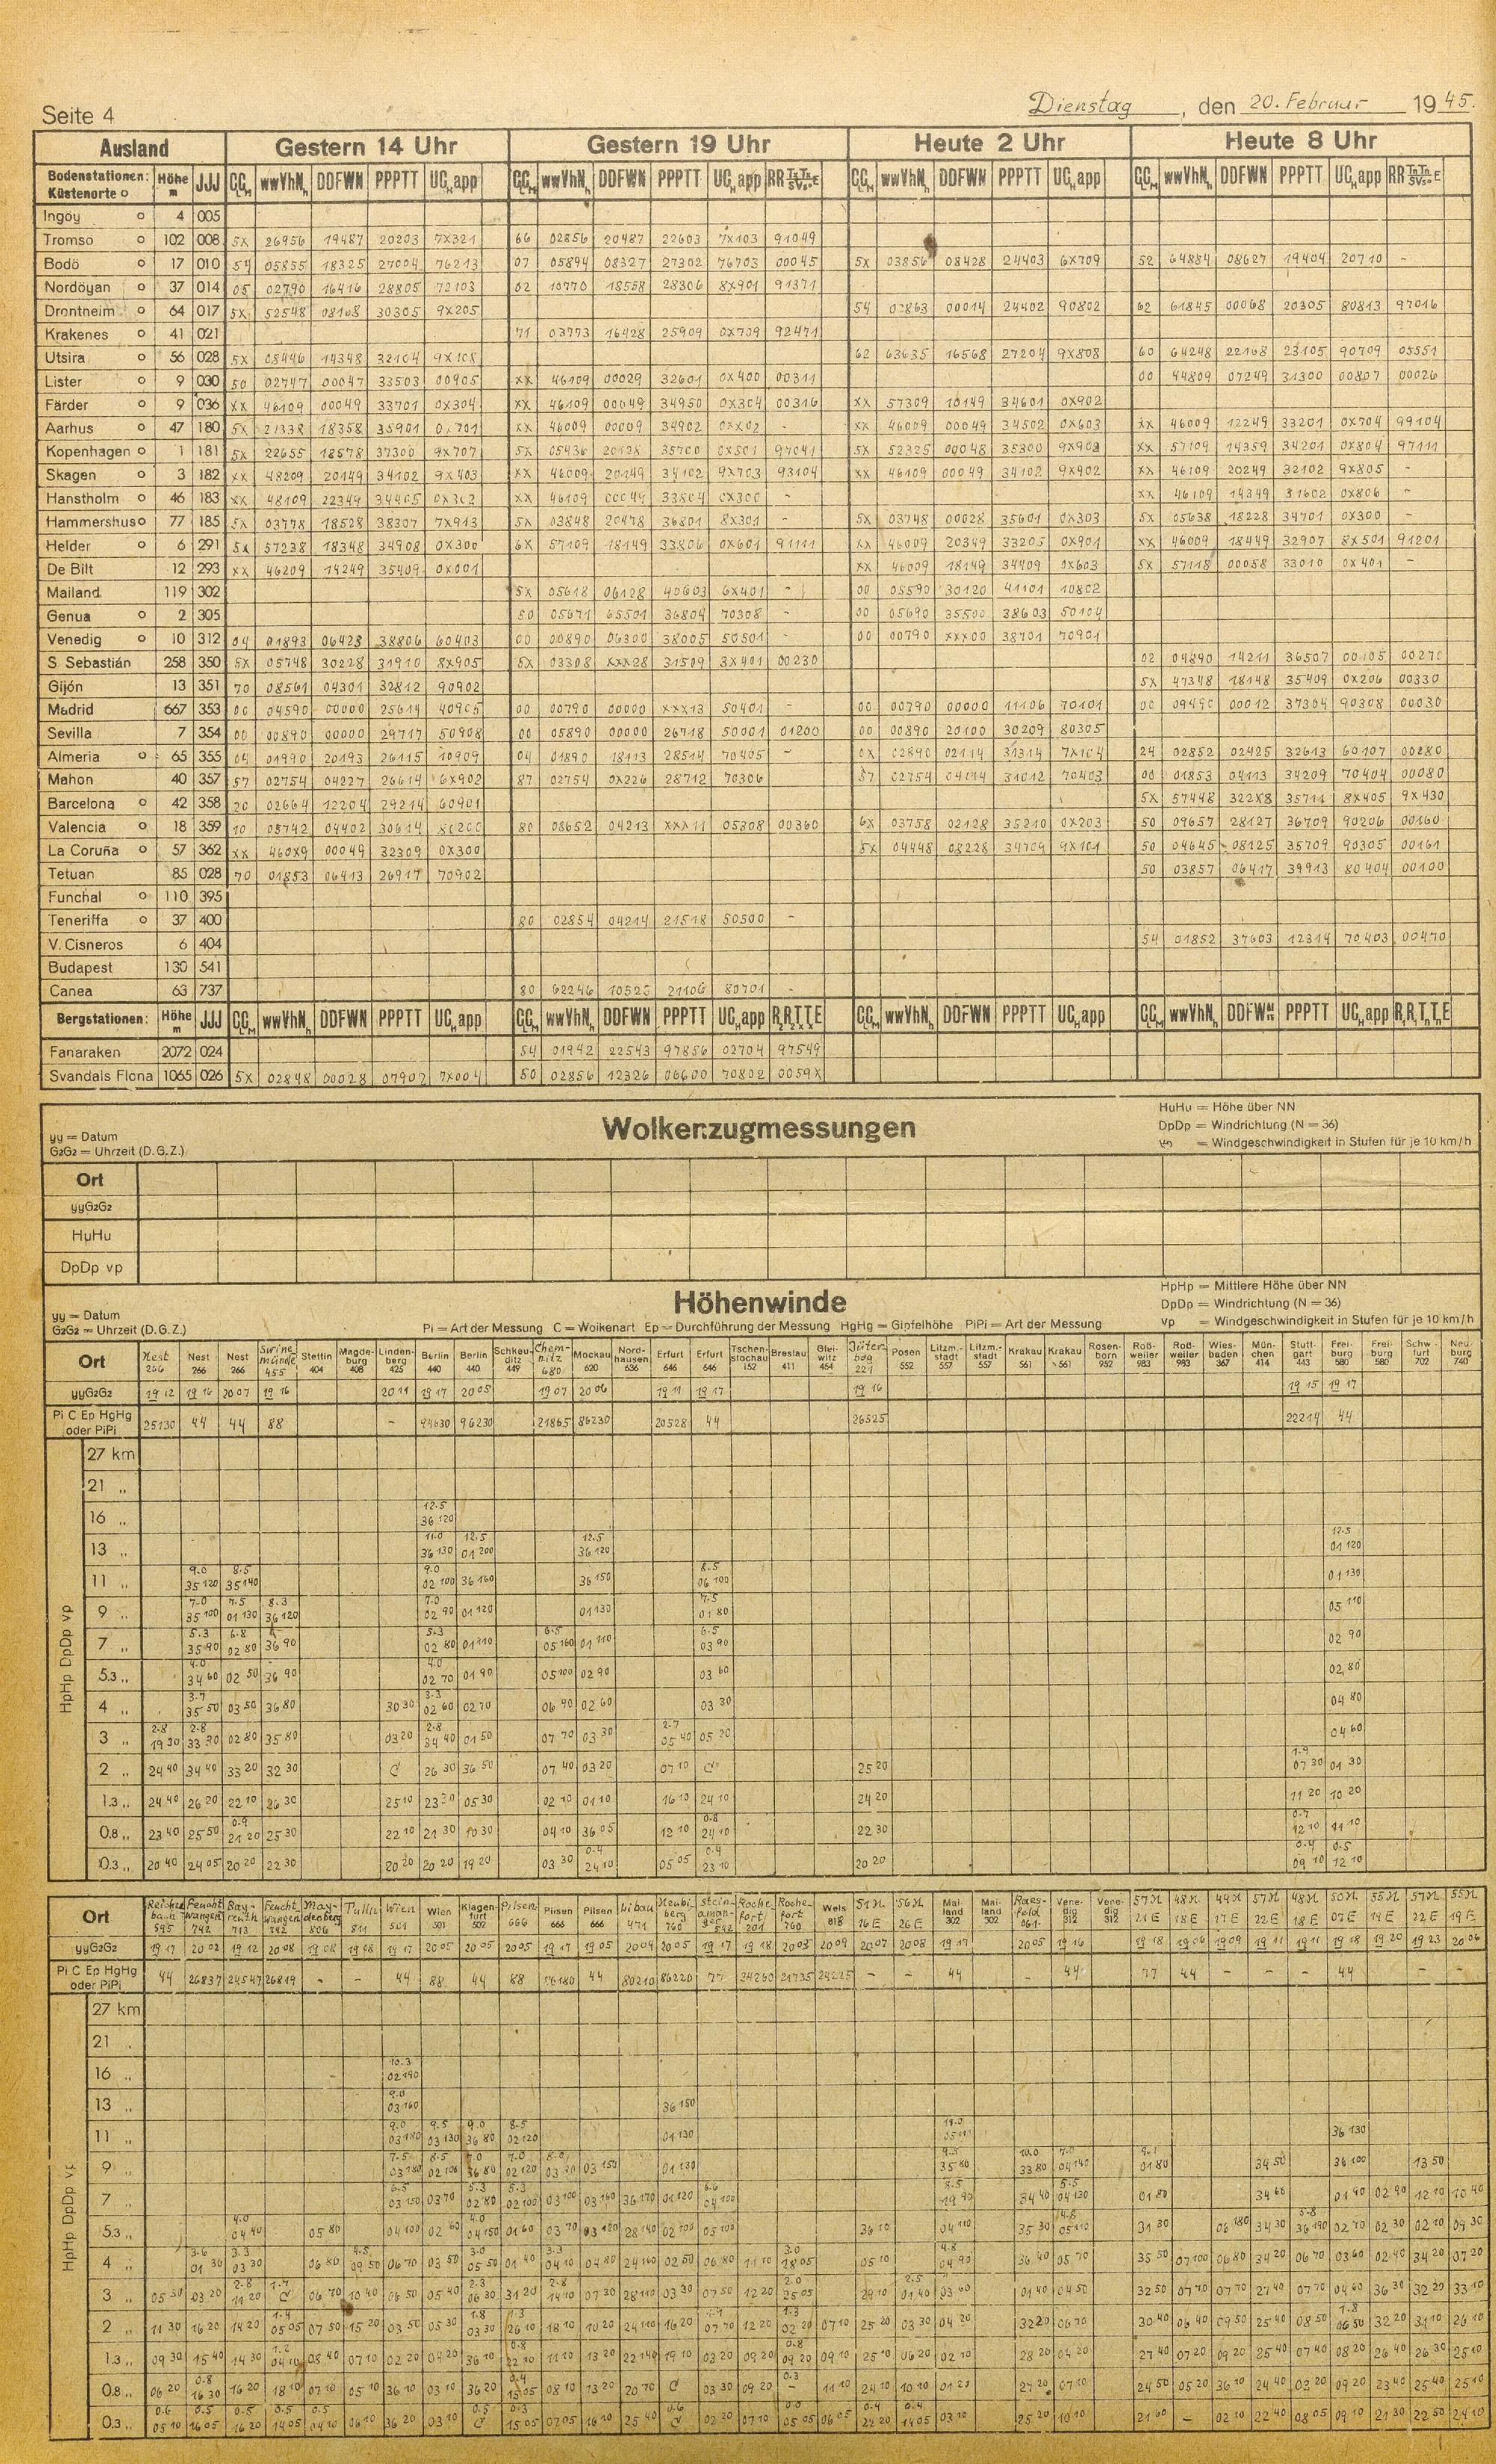 Seite 4
Dienstag, den 20. Februar 1945.
Ausland Gestern 14 Uhr Gestern 19 Uhr Heute 2 Uhr Heute 8 Uhr
Bodenstationen: Küstenorte o Höhe m JJJ
Ingöy o 4 005
Tromso o 102 008 5X 26956 19487 20203 7X321 66 02856 20487 22603 7X103 91049
Bodö o 17 010 54 05855 18325 27004 76213 07 05894 08327 27302 76703 00045 5X 03856 08428 24403 6X709 52 64884 08627 19404 20710 -
Nordöyan o 37 014 05 02790 16416 28805 72103 02 10770 18558 28306 8X901 91371
Drontheim o 64 017 5X 52548 08168 30305 9X205 54 02863 00014 24402 90802 62 61845 00068 20305 80813 97016
Krakenes o 41 021 71 03773 16428 25909 0X709 92471
Utsira o 56 028 5X 05446 14348 32104 9X108 62 63635 16568 27204 9X808 60 64248 22168 23105 90709 05551
Lister o 9 030 50 02747 00047 33503 00905 XX 46109 00029 32601 0X400 00311 00 44809 07249 31300 00807 00026
Färder o 9 036 XX 46109 00049 33701 0X304 XX 46109 00049 34950 0X304 00316 XX 57309 10149 34601 0X902
Aarhus o 47 180 5X 21338 18358 35901 0X701 XX 46009 00009 34902 0XX02 - XX 46009 00049 34502 0X603 XX 46009 12249 33201 0X704 99104
Kopenhagen o 1 181 5X 22655 18578 37300 9X707 5X 05436 35700 0X501 97041 5X 52325 00048 35300 9X902 XX 57109 14359 34201 0X804 97111
Skagen o 3 182 XX 48209 20149 34102 9X403 XX 46009 20149 34102 9X703 93104 XX 46109 00049 34102 9X902 XX 46109 20249 32102 9X805 -
Hanstholm o 46 183 XX 48109 22349 34405 0X302 XX 46109 00049 33804 0X300 - XX 46109 14349 31602 0X806 -
Hammershus o 77 185 5X 03778 18528 38307 7X913 5X 03848 20478 36801 8X301 - 5X 03748 00028 35601 0X303 5X 05638 18228 34701 0X300 -
Helder o 6 291 5X 57238 18348 34908 0X300 6X 57109 18149 33806 0X601 91111 XX 46009 20349 33205 0X901 XX 46009 18449 32907 8X501 91201
De Bilt 12 293 XX 46209 14249 35409 0X001 XX 46009 18149 34409 0X603 5X 57118 00058 33010 0X401 -
Mailand 119 302 5X 05618 06128 40603 6X401 - 00 05590 30120 41101 10802
Genua o 2 305 50 05671 65501 36804 70308 - 00 05690 35500 38603 50104
Venedig o 10 312 04 01893 06423 38806 60403 00 00890 06300 38005 50501 - 00 00790 XXX00 38701 70901
S. Sebastián 258 350 5X 05748 30228 31910 8X905 5X 03308 XXX28 31509 3X401 00230 02 04890 14211 36507 00105 00270
Gijón 13 351 70 08561 04301 32812 90902 5X 47348 18148 35409 0X206 00330
Madrid 667 353 00 04590 00000 25614 40905 00 00790 00000 XXX13 50401 - 00 00790 00000 11106 70101 00 09490 00012 37304 90308 00030
Sevilla 7 354 00 00890 00000 29717 50908 00 05890 00000 26718 50001 01200 00 00890 20100 30209 80305
Almeria o 65 355 04 01990 20193 26115 10909 04 01890 18113 28514 70405 - 0X 02840 02114 31314 7X104 24 02852 02425 32613 60107 00280
Mahon 40 357 57 02754 04227 26614 6X902 87 02754 0X226 28712 70306 57 02754 04114 31012 70403 00 01853 04113 34209 70404 00080
Barcelona o 42 358 20 02664 12204 29214 60901 5X 57448 322X8 35711 8X405 9X430
Valencia o 18 359 10 05742 04402 30614 80 08652 04213 XXX11 05308 00360 6X 03758 02128 35210 0X203 50 09657 28127 36709 90206 00160
La Coruña o 57 362 XX 460X9 00049 32309 0X300 5X 04448 08228 34709 9X101 50 04645 08125 35709 90305 00161
Tetuan 85 028 70 01853 06413 26917 70902 50 03857 06417 39913 80404 00100
Funchal o 110 395
Teneriffa o 37 400 80 02854 04214 21518 50500 -
V. Cisneros 6 404 54 01852 37603 12314 70403 00470
Budapest 130 541
Canea 63 737 80 62246 10525 21106 80701 -
Bergstationen: Höhe m JJJ
Fanaraken 2072 024 54 01942 22543 97856 02704 97549
Svandals Flona 1065 026 5X 02848 00028 07902 7X004 50 02856 12326 06600 70802 0059X
Wolkenzugmessungen
yy = Datum
G₂G₂ = Uhrzeit (D.G.Z.)
HuHu = Höhe über NN
DpDp = Windrichtung (N = 36)
vp = Windgeschwindigkeit in Stufen für je 10 km/h
Ort
yyG₂G₂
HuHu
DpDp vp
Höhenwinde
yy = Datum
G₂G₂ = Uhrzeit (D.G.Z.)
Pi = Art der Messung C = Wolkenart Ep = Durchführung der Messung HgHg = Gipfelhöhe PiPi = Art der Messung
HpHp = Mittlere Höhe über NN
DpDp = Windrichtung (N = 36)
vp = Windgeschwindigkeit in Stufen für je 10 km/h
Ort Nest 266 Nest 266 Nest 266 Swinemünde 455 Stettin 404 Magdeburg 408 Lindenberg 425 Berlin 440 Berlin 440 Schkeuditz 449 Chemnitz 680 Mockau 620 Nordhausen 636 Erfurt 646 Erfurt 646 Tschenstochau 152 Breslau 411 Gleiwitz 454 Jüterbog 221 Posen 552 Litzm.-stadt 557 Litzm.-stadt 557 Krakau 561 Krakau 561 Rosenborn 952 Roßweiler 983 Roßweiler 983 Wiesbaden 367 München 414 Stuttgart 443 Freiburg 580 Freiburg 580 Schwfurt 702 Neuburg 740
yyG₂G₂ 19 12 19 16 20 07 19 16 20 11 19 17 20 05 19 07 20 06 19 11 19 17 19 16 19 15 19 17
Pi C Ep HgHg oder PiPi 25130 44 44 88 - 94630 96230 21865 86230 20528 44 26525 22214 44
27 km
21 „
16 „ 12.5 36 120
13 „ 11.0 36 130 12.5 01 200 12.5 36 120 12.5 01 120
11 „ 9.0 35 120 8.5 35 140 9.0 02 100 36 160 36 150 8.5 06 100 01 130
9 „ 7.0 35 100 7.5 01 130 8.3 36 120 7.0 02 90 01 120 01 130 7.5 01 80 05 110
7 „ 5.3 35 90 6.8 02 80 36 90 5.3 02 80 01 110 6.5 05 160 01 110 6.5 03 90 02 90
5.3 „ 4.0 34 60 02 50 36 90 4.0 02 70 01 90 05 100 02 90 03 60 02 80
4 „ 3.7 35 50 03 50 36 80 30 30 3.3 02 60 02 70 06 90 02 60 03 30 04 80
3 „ 2.8 19 30 2.8 33 30 02 80 35 80 03 20 2.8 34 40 01 50 07 70 03 30 2.7 05 40 05 20 04 60
2 „ 24 40 34 40 33 20 32 30 C 26 30 36 50 07 40 03 20 07 10 C 25 20 1.9 07 30 01 30
1.3 „ 24 40 26 20 22 10 26 30 25 10 23 30 05 30 02 10 01 10 16 10 24 10 24 20 11 20 10 20
0.8 „ 23 40 25 50 0.9 21 20 25 30 22 10 21 30 10 30 04 10 36 05 12 10 0.8 24 10 22 30 0.7 12 10 11 10
0.3 „ 20 40 24 05 20 20 22 30 20 20 20 20 19 20 03 30 0.4 24 10 05 05 0.4 23 10 20 20 0.4 09 10 0.5 12 10
HpHp DpDp vp
Ort Feuchtwangen 742 Bayreuth 713 Feuchtwangen 742 Tulln 811 Wien 501 Wien 501 Klagenfurt 502 Pilsen 666 Pilsen 666 Pilsen 666 Libau 471 Rochefort 201 Rochefort 760 Wels 818 51N 16E 56N 26E Mailand 302 Mailand 302 Venedig 312 Venedig 312 57N 21E 48N 18E 49N 17E 57N 22E 48N 18E 50N 07E 55N 14E 57N 22E 55N 19E
yyG₂G₂ 19 17 20 02 19 12 20 08 19 08 19 08 19 17 20 05 20 05 20 05 19 17 19 05 20 04 20 05 19 17 19 18 20 03 20 09 20 07 20 08 19 17 20 05 19 16 19 18 19 06 19 09 19 11 19 11 19 18 19 20 19 23 20 06
Pi C Ep HgHg oder PiPi 44 26837 24547 26819 - - 44 88 44 88 44 80210 86220 24260 21735 24225 - - 44 - 44 77 44 - - - 44 - -
27 km
21 „
16 „ 10.3 02 190
13 „ 9.0 03 160 36 150
11 „ 9.0 03 180 9.5 03 130 9.0 36 80 8.5 02 120 01 130 36 130
9 „ 7.5 03 180 8.5 7.0 36 80 7.0 02 120 03 150 01 120 35 80 10.0 33 80 7.0 04 140 01 80 34 50 36 100 13 50
7 „ 6.5 03 150 03 70 5.3 02 80 5.3 02 100 03 100 03 160 36 170 01 120 04 100 8.5 19 90 34 40 5.5 04 130 01 80 34 60 01 90 02 90 12 10 10 40
5.3 „ 4.0 04 40 05 80 04 100 02 60 4.0 04 150 01 60 03 70 03 120 28 140 02 100 05 100 36 10 04 110 35 30 4.8 05 110 31 30 06 180 34 30 5.8 36 190 02 70 02 30 02 10 09 30
4 „ 3.6 01 30 3.3 03 30 06 80 4.5 09 50 06 70 03 50 3.0 05 50 01 40 3.3 04 10 04 80 24 160 02 50 06 80 11 10 3.0 18 05 05 10 4.8 04 90 36 40 05 70 35 50 07 100 06 80 34 20 06 70 03 60 02 40 34 20 07 20
3 „ 05 30 03 20 2.8 11 20 C 06 70 10 40 06 50 05 40 2.3 06 30 31 20 2.8 14 10 07 30 28 110 03 30 07 50 12 20 2.0 25 05 29 10 2.5 01 40 03 60 01 40 04 50 32 50 07 70 07 70 27 40 07 70 04 60 36 30 32 20 33 10
2 „ 11 30 16 20 14 20 1.4 05 05 07 50 15 20 03 50 05 30 1.8 03 30 1.3 26 10 18 10 10 20 24 110 16 20 07 70 12 20 1.3 02 20 07 10 25 20 03 30 04 20 32 20 06 70 30 40 06 40 09 50 25 40 08 50 1.8 06 50 32 20 31 10 26 10
1.3 „ 09 30 15 40 14 30 1.2 04 10 08 40 07 10 02 20 04 20 36 10 0.8 22 10 11 10 13 20 22 140 19 10 03 20 09 20 0.8 09 20 09 10 25 10 06 20 02 10 28 20 04 20 27 40 07 20 09 20 25 40 07 40 08 20 26 40 26 30 25 10
0.8 „ 06 20 0.8 16 30 16 20 18 10 07 10 05 10 36 10 03 10 36 20 0.4 15 05 08 10 13 20 20 70 C 03 30 09 20 0.3 - 11 10 24 10 10 10 01 20 27 20 07 10 24 50 05 20 36 10 24 40 03 20 09 20 23 40 25 40 25 10
0.3 „ 0.6 05 10 0.5 16 05 0.5 16 20 0.5 14 05 0.5 04 10 06 10 36 20 03 10 0.5 C 0.3 15 05 07 05 16 10 25 40 0.6 C 02 20 07 10 05 05 06 05 0.4 22 20 0.4 14 05 03 10 25 20 10 10 21 60 - 02 10 22 40 08 05 09 10 21 30 22 50 24 10
HpHp DpDp vp